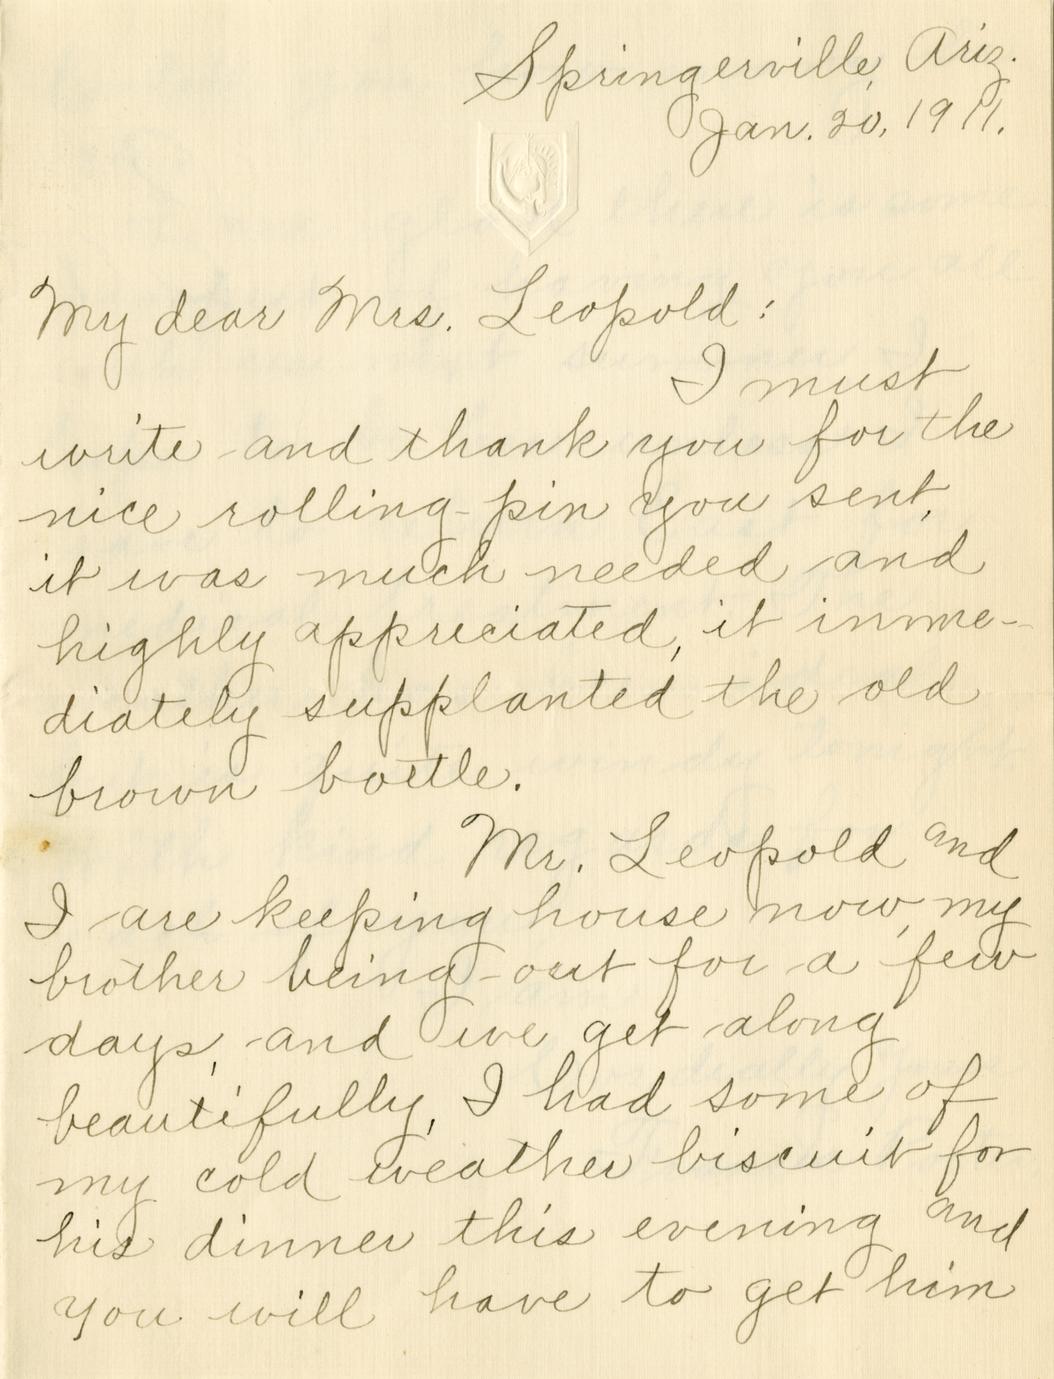 Springerville, Ariz.
Jan. 20, 1911.
My dear Mrs. Leopold:
I must
write and thank you for the
nice rolling-pin you sent,
it was much needed and
highly appreciated, it imme-
diately supplanted the old
brown bottle.
Mr. Leopold and
I are keeping house now, my
brother being out for a few
days, and we get along
beautifully, I had some of
my cold weather biscuit for
his dinner this evening and
you will have to get him